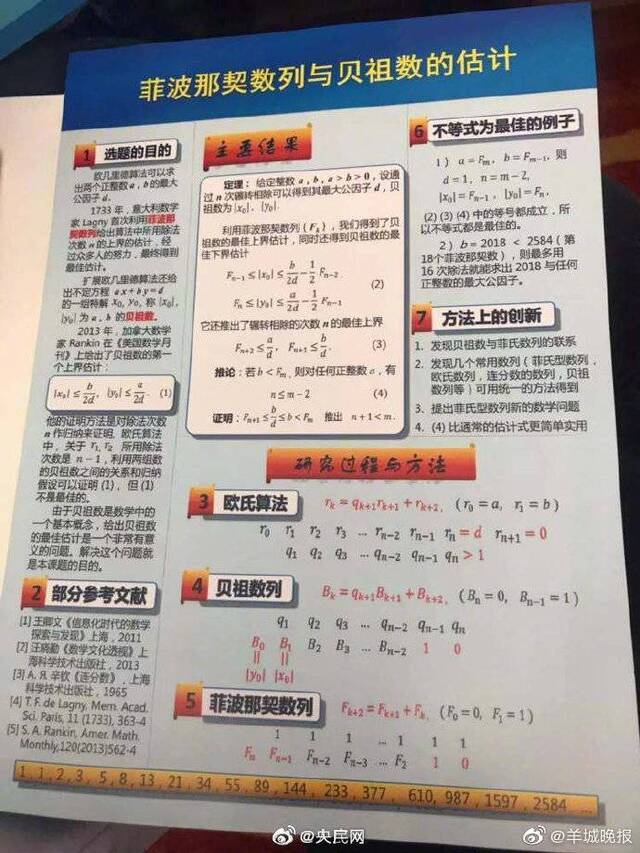 菲波那契数列与贝祖数的估计
1 选题的目的
欧几里德算法可以求
出两个正整数 a, b 的最大
公因子 d.
1733 年，意大利数学
家 Lagny 首次利用菲波那
契数列给出算法中所用除法
次数 n 的上界的估计，经
过众人的努力，最终得到
最佳估计。
扩展欧几里德算法还给
出不定方程 ax + by = d
的一组特解 x₀, y₀, 称 |x₀|,
|y₀| 为 a、b 的贝祖数。
2013 年，加拿大数学
家 Rankin 在《美国数学月
刊》上给出了贝祖数的第一
个上界估计：
|x₀| ≤ b/2d, |y₀| ≤ a/2d. (1)
他的证明方法是对除法次数
n 作归纳来证明. 欧氏算法
中，关于 r₁, r₂ 所用除法
次数是 n − 1，利用两组数
的贝祖数之间的关系和归纳
假设可以证明 (1)，但 (1)
不是最佳的。
由于贝祖数是数学中的
一个基本概念，给出贝祖数
的最佳估计是一个非常有意
义的问题。解决这个问题就
是本课题的目的。
2 部分参考文献
[1] 王卿文《信息化时代的数学
探索与发现》上海，2011
[2] 汪晓勤《数学文化透视》上
海科学技术出版社，2013
[3] А. Я. 辛钦《连分数》. 上海
科学技术出版社，1965
[4] T. F. de Lagny, Mem. Acad.
Sci. Paris, 11 (1733), 363-4
[5] S. A. Rankin, Amer. Math.
Monthly,120(2013)562-4
主要结果
定理：给定整数 a, b, a > b > 0, 设通
过 n 次碾转相除可以得到其最大公因子 d, 贝
祖数为 |x₀|, |y₀|.
利用菲波那契数列 (Fₖ), 我们得到了贝
祖数的最佳上界估计, 同时还得到贝祖数的最
佳下界估计
Fₙ₋₁ ≤ |x₀| ≤ b/d − 1/2 Fₙ₋₂
(2)
Fₙ ≤ |y₀| ≤ a/d − 1/2 Fₙ₋₁
它还推出了碾转相除的次数 n 的最佳上界
Fₙ₊₂ ≤ a/d, Fₙ₊₁ ≤ b/d. (3)
推论：若 b < Fₘ, 则对任何正整数 a, 有
n ≤ m − 2 (4)
证明：Fₙ₊₁ ≤ b/d ≤ b < Fₘ 推出 n + 1 < m.
6 不等式为最佳的例子
1) a = Fₘ, b = Fₘ₋₁, 则
d = 1, n = m − 2,
|x₀| = Fₙ₋₁, |y₀| = Fₙ,
(2) (3) (4) 中的等号都成立. 所
以不等式都是最佳的。
2) b = 2018 < 2584 (第
18个菲波那契数)，则最多用
16 次除法就能求出 2018 与任何
正整数的最大公因子。
7 方法上的创新
1. 发现贝祖数与菲氏数列的联系
2. 发现几个常用数列（菲氏型数列，
欧氏数列，连分数的数列，贝祖
数列等）可用统一的方法得到
3. 提出菲氏型数列新的数学问题
4. (4) 比通常的估计式更简单实用
研究过程与方法
3 欧氏算法 rₖ = qₖ₊₁rₖ₊₁ + rₖ₊₂, (r₀ = a, r₁ = b)
r₀ r₁ r₂ r₃ ... rₙ₋₂ rₙ₋₁ rₙ = d rₙ₊₁ = 0
q₁ q₂ q₃ ... qₙ₋₂ qₙ₋₁ qₙ > 1
4 贝祖数列 Bₖ = qₖ₊₁Bₖ₊₁ + Bₖ₊₂, (Bₙ = 0, Bₙ₋₁ = 1)
q₁ q₂ q₃ ... qₙ₋₂ qₙ₋₁ qₙ
B₀ B₁ B₂ B₃ ... Bₙ₋₂ 1 0
|| ||
|y₀| |x₀|
5 菲波那契数列 Fₖ₊₂ = Fₖ₊₁ + Fₖ, (F₀ = 0, F₁ = 1)
1 1 1 ... 1 1 1
Fₙ Fₙ₋₁ Fₙ₋₂ Fₙ₋₃ ... F₂ 1 0
1, 1, 2, 3, 5, 8, 13, 21, 34, 55, 89, 144, 233, 377, 610, 987, 1597, 2584 ...
@央民网
@羊城晚报